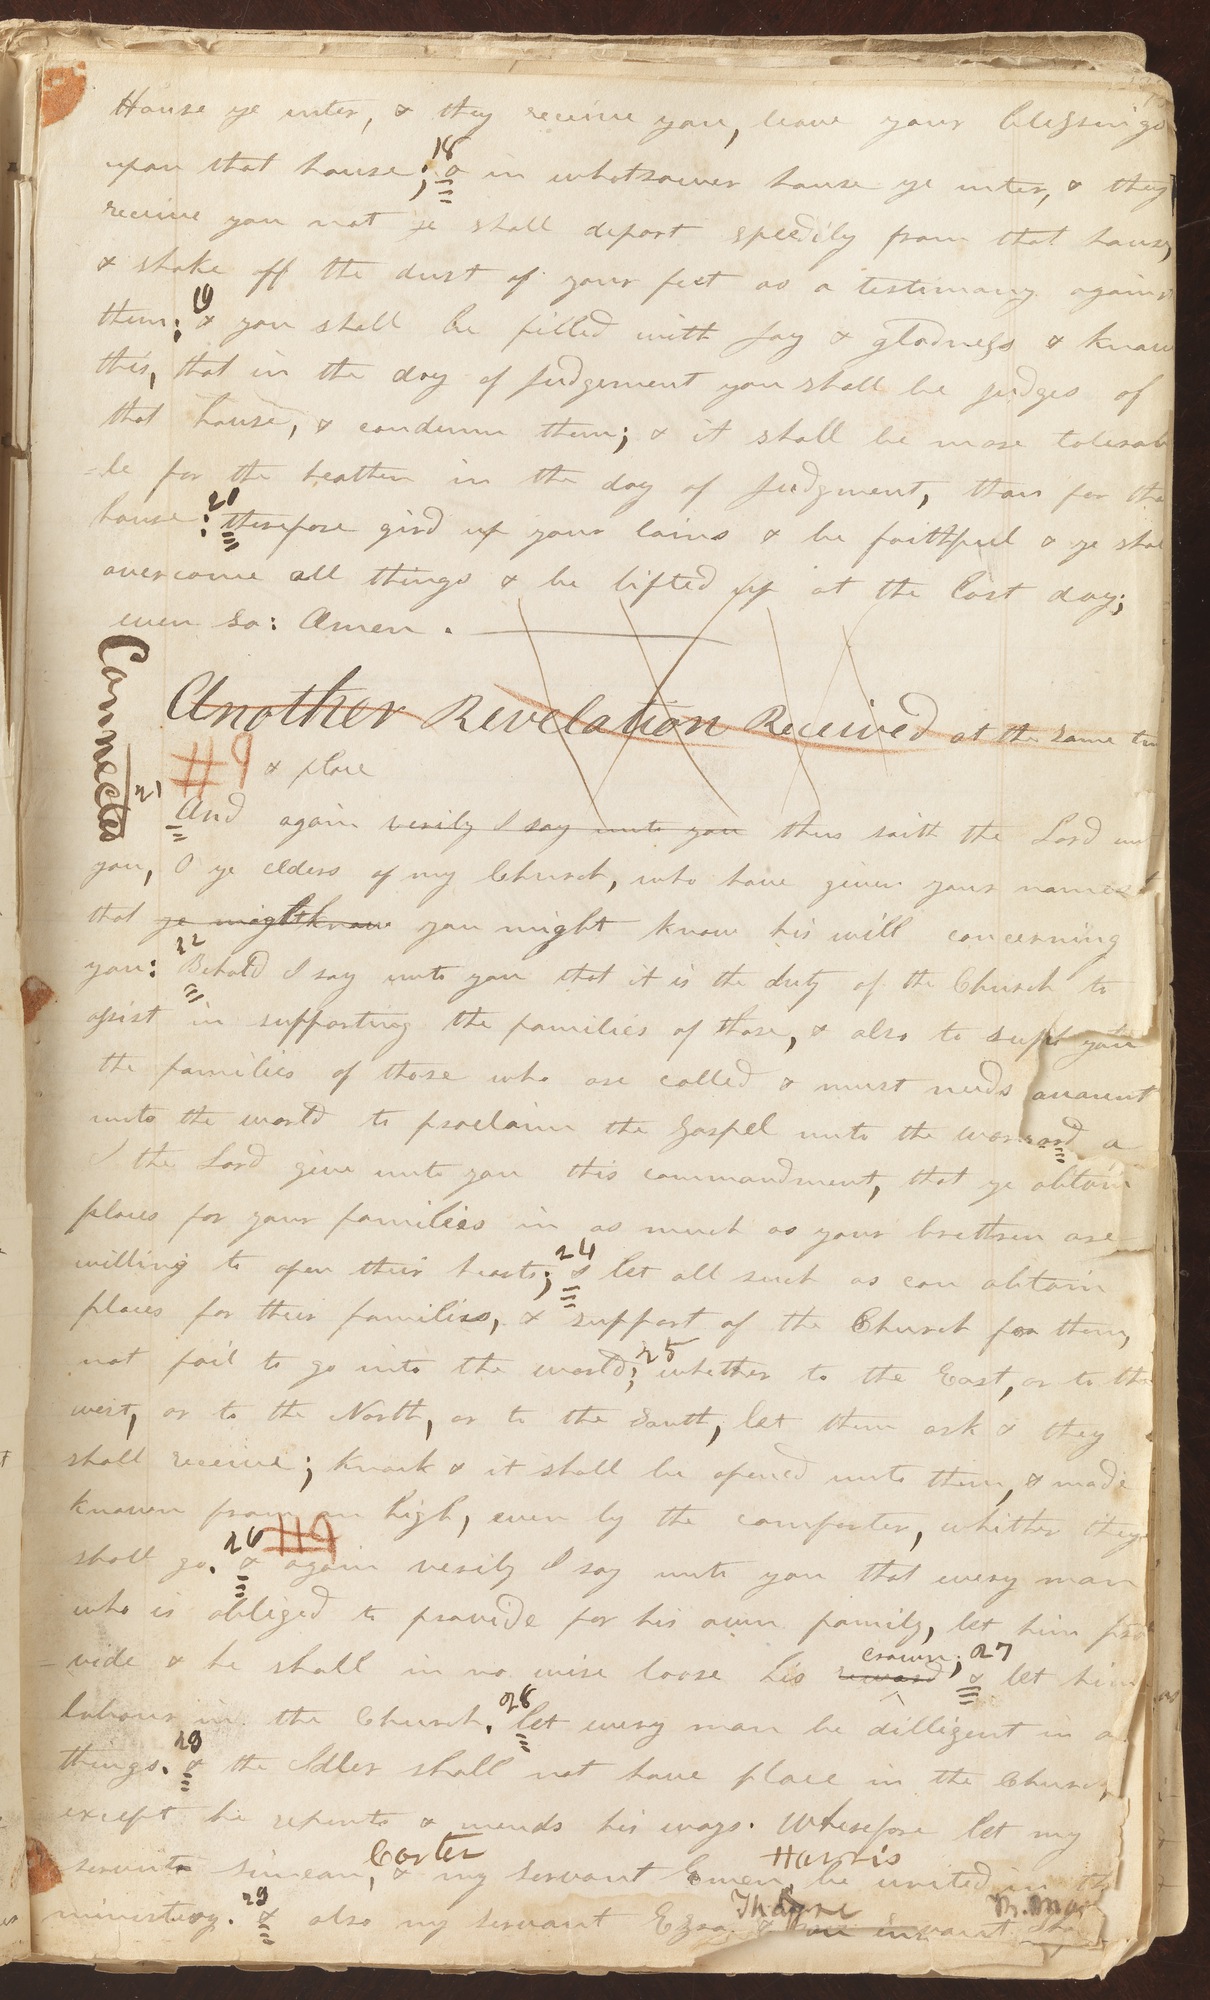 House ye enter, & they receive you, leave your blessings
upon that house; 18 & in whatsoever house ye enter, & they
receive you not ye shall depart speedily from that house,
& shake off the dust of your feet as a testimony against
them; 19 & you shall be filled with Joy & gladness & know
this, that in the day of Judgement you shall be judges of
that house, & condemn them; & it shall be more tolerab
-le for the heathen in the day of Judgment, than for that
house: 20 therefore gird up your loins & be faithful & ye shal
overcome all things & be lifted up at the last day;
even so: Amen.
Connected
Another Revelation Received at the same time
#9 & place
21 And again verily I say unto you thus saith the Lord unt
you, O ye elders of my Church, who have given your names
that ye might know you might know his will concerning
you: 22 Behold I say unto you that it is the duty of the Church to
assist in supporting the families of those, & also to supt
the families of those who are called & must needs
unto the world to proclaim the Gospel unto the
I the Lord give unto you this commandment, that ye obtain
places for your families in as much as your brethren are
willing to open their hearts; 24 & let all such as can obtain
places for their families, & support of the Church for them,
not fail to go into the world; 25 whether to the East, or to the
west, or to the North, or to the South, let them ask & they
shall receive; knock & it shall be opened unto them, & made
known from on high, even by the comforter, whither they
shall go. 26 #9 & again verily I say unto you that every man
who is obliged to provide for his own family, let him pro
-vide & he shall in no wise loose his reward crown; 27 & let him
labour in the Church. 28 let every man be dilligent in a
things. 29 & the Idler shall not have place in the Church,
except he repents & mends his ways. Wherefore let my
servant simeon, Carter & my servant Emer, Harris be united in the
ministery. 29 & also my servant Ezra Thayre &